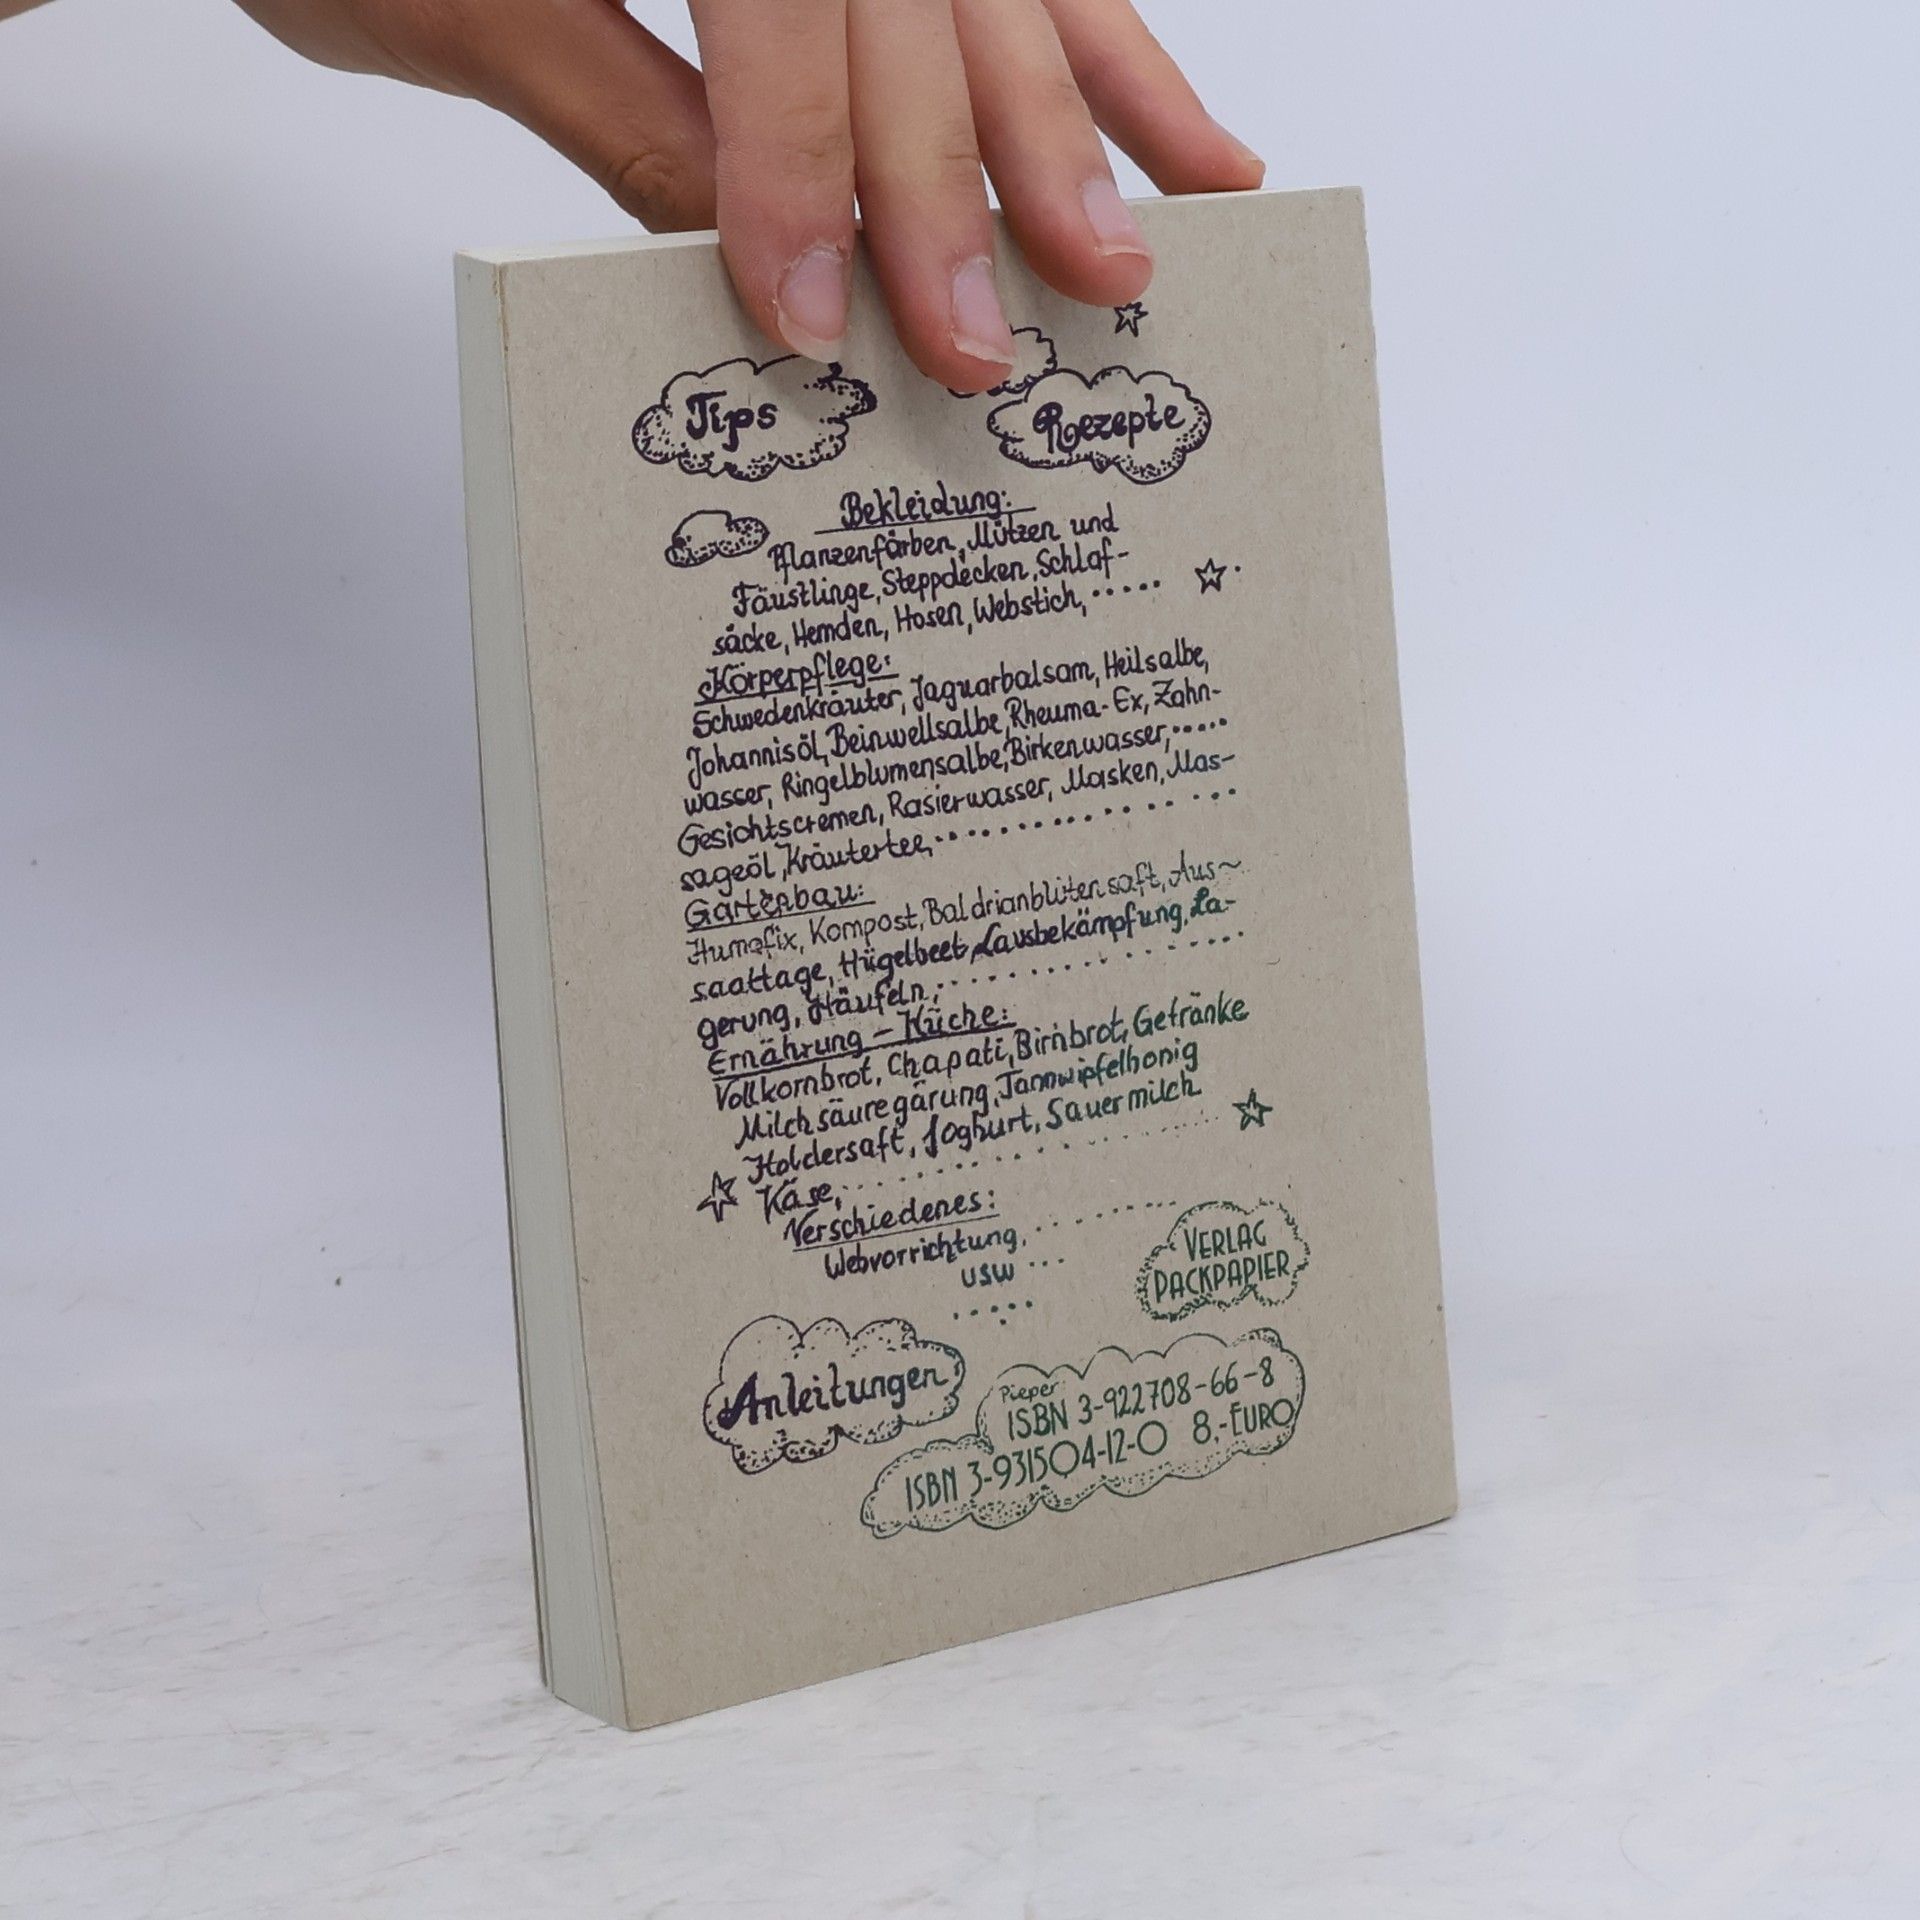 Tips
Rezepte
Bekleidung:
Pflanzenfärben, Mützen und
Fäustlinge, Steppdecken, Schlaf-
säcke, Hemden, Hosen, Webstich, .....
Körperpflege:
Schwedenkräuter, Jaguarbalsam, Heilsalbe,
Johannisöl, Beinwellsalbe, Rheuma-Ex, Zahn-
wasser, Ringelblumensalbe, Birkenwasser, .....
Gesichtscremen, Rasierwasser, Masken, Mas-
sageöl, Kräutertee, ..............
Gartenbau:
Humofix, Kompost, Baldrianblütensaft, Aus~
saattage, Hügelbeet, Lausbekämpfung, La-
gerung, Häufeln, ..............
Ernährung - Küche:
Vollkornbrot, Chapati, Birnbrot, Getränke
Milchsäuregärung, Tannwipfelhonig
Holdersaft, Joghurt, Sauermilch
Käse, ..............
Verschiedenes:
Webvorrichtung, .........
usw ...
.....
VERLAG
PACKPAPIER
Anleitungen
Pieper
ISBN 3-922708-66-8
ISBN 3-931504-12-0 8,-EURO